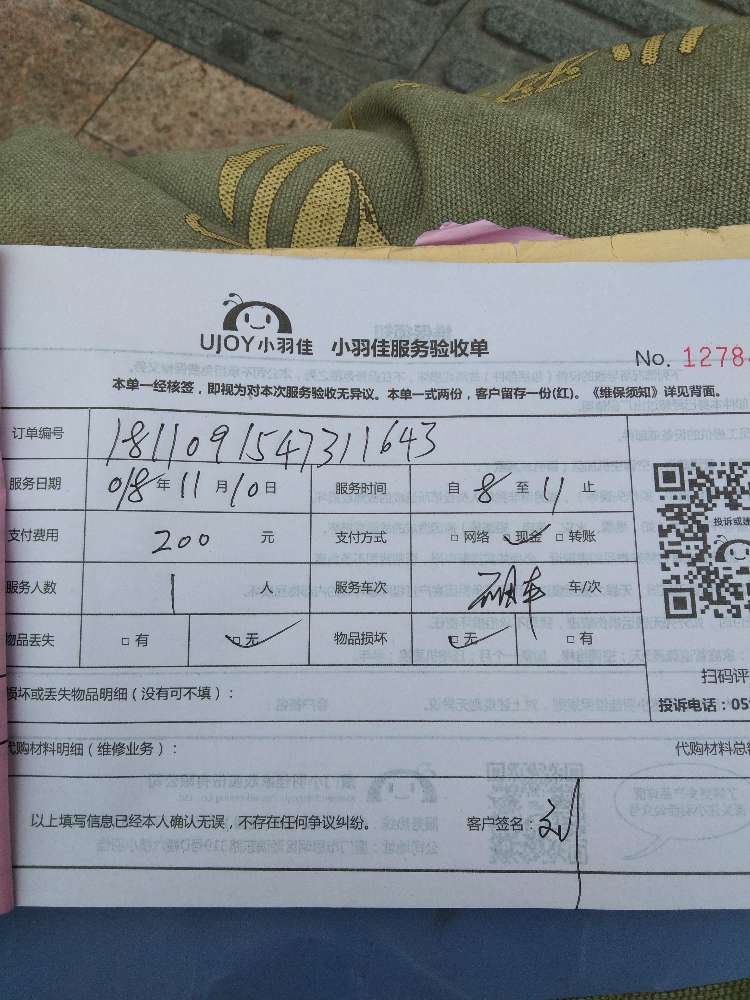 UJOY小羽佳 小羽佳服务验收单
No. 1278
本单一经核签，即视为对本次服务验收无异议。本单一式两份，客户留存一份(红)。《维保须知》详见背面。
订单编号 1811091547311643
服务日期 018年11月10日 服务时间 自8至11止
支付费用 200 元 支付方式 □网络 □现金 □转账
服务人数 1 人 服务车次 车/次
物品丢失 □有 □无 物品损坏 □无 □有
损坏或丢失物品明细（没有可不填）：
代购材料明细（维修业务）： 代购材料总
投诉或
扫码评
投诉电话：05
以上填写信息已经本人确认无误，不存在任何争议纠纷。 客户签名：刘